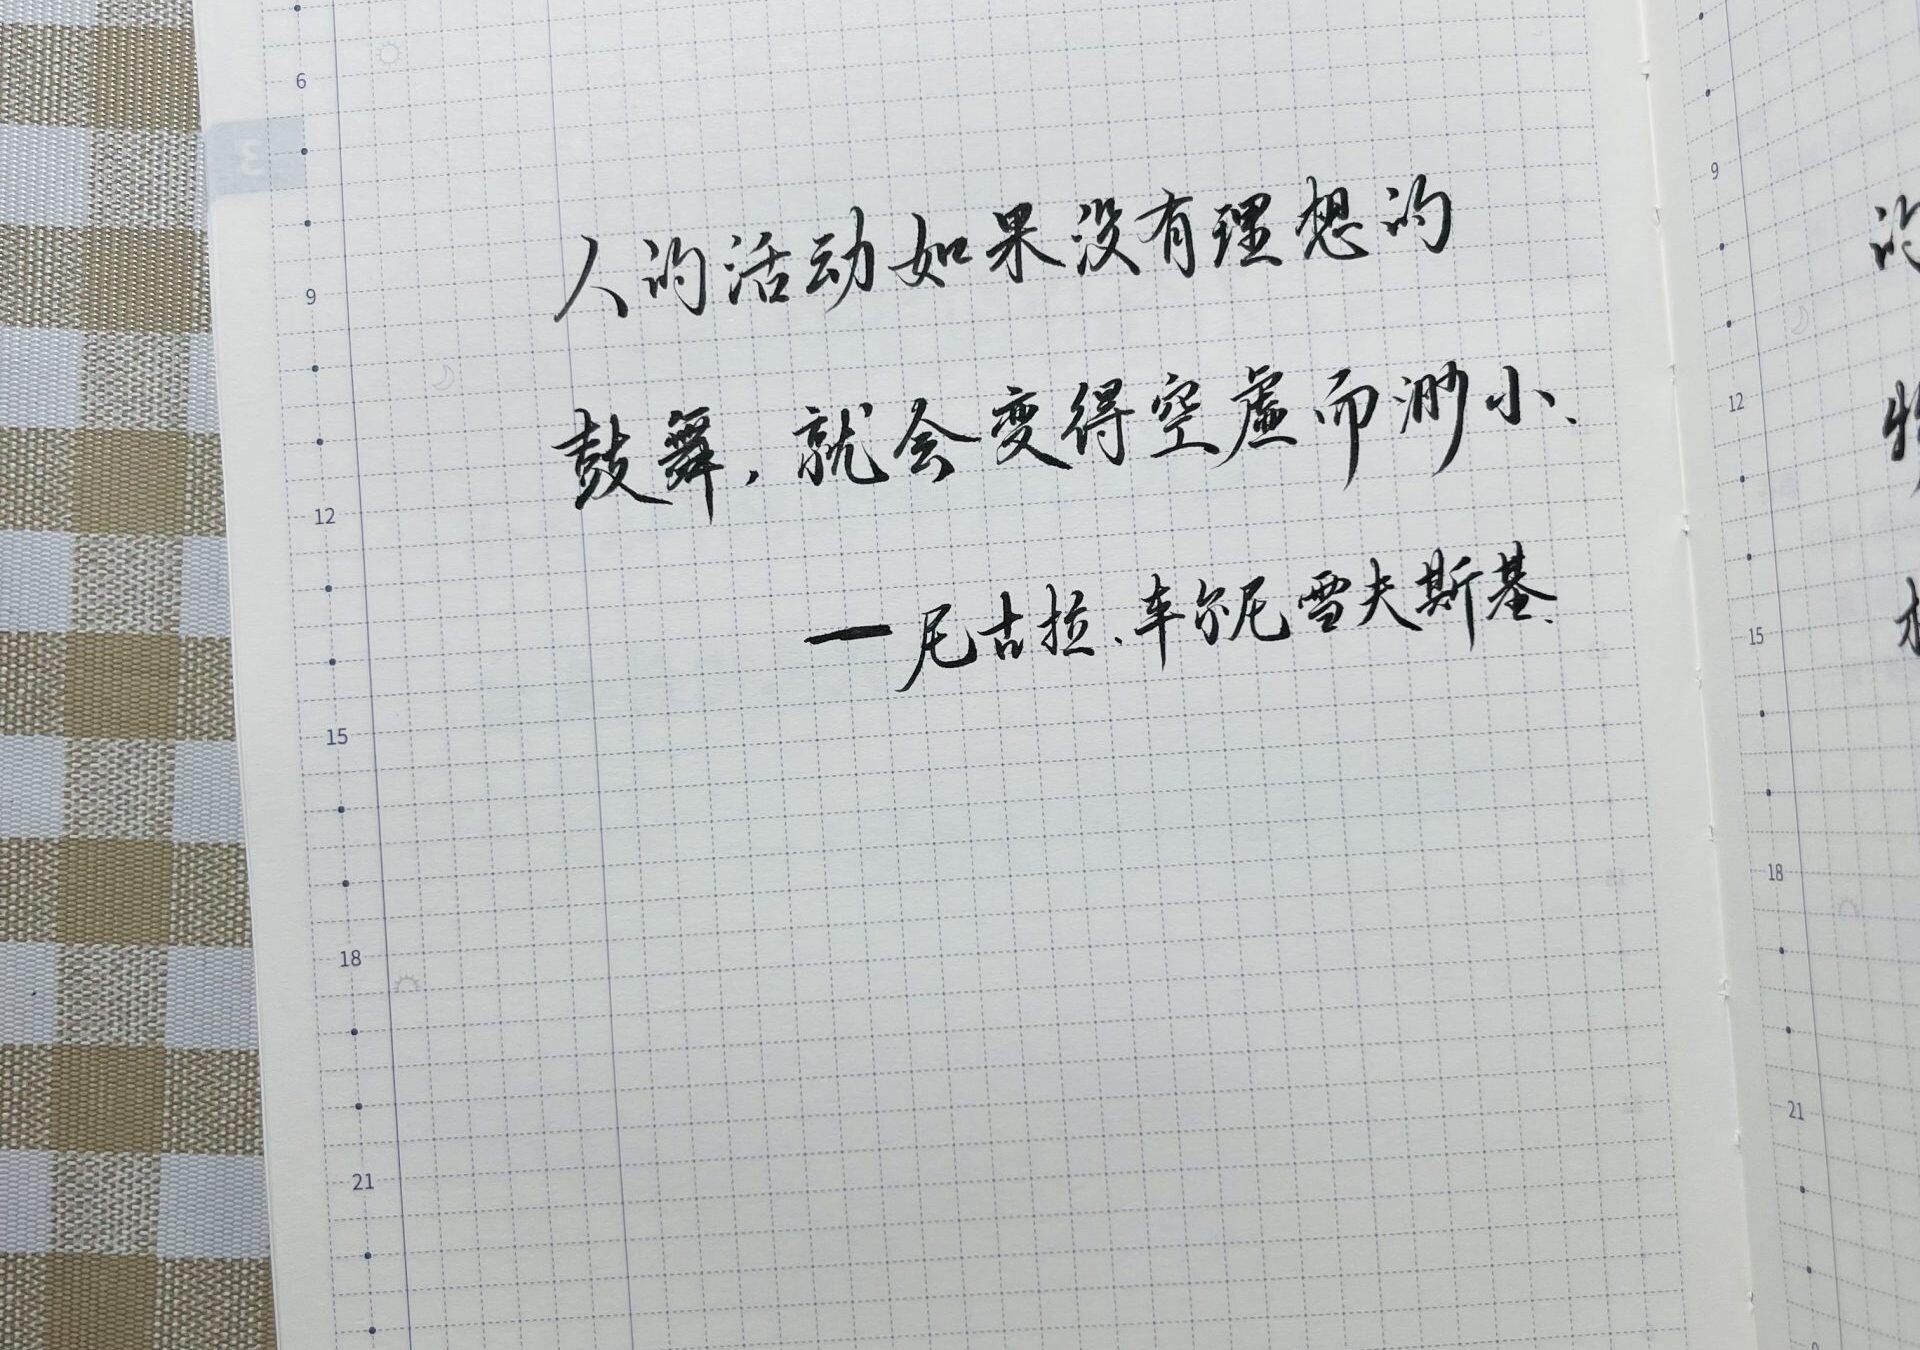 人的活动如果没有理想的
鼓舞，就会变得空虚而渺小、
一尼古拉、车尔尼雪夫斯基、
6
9
12
15
18
21
3
9
12
15
18
21
的